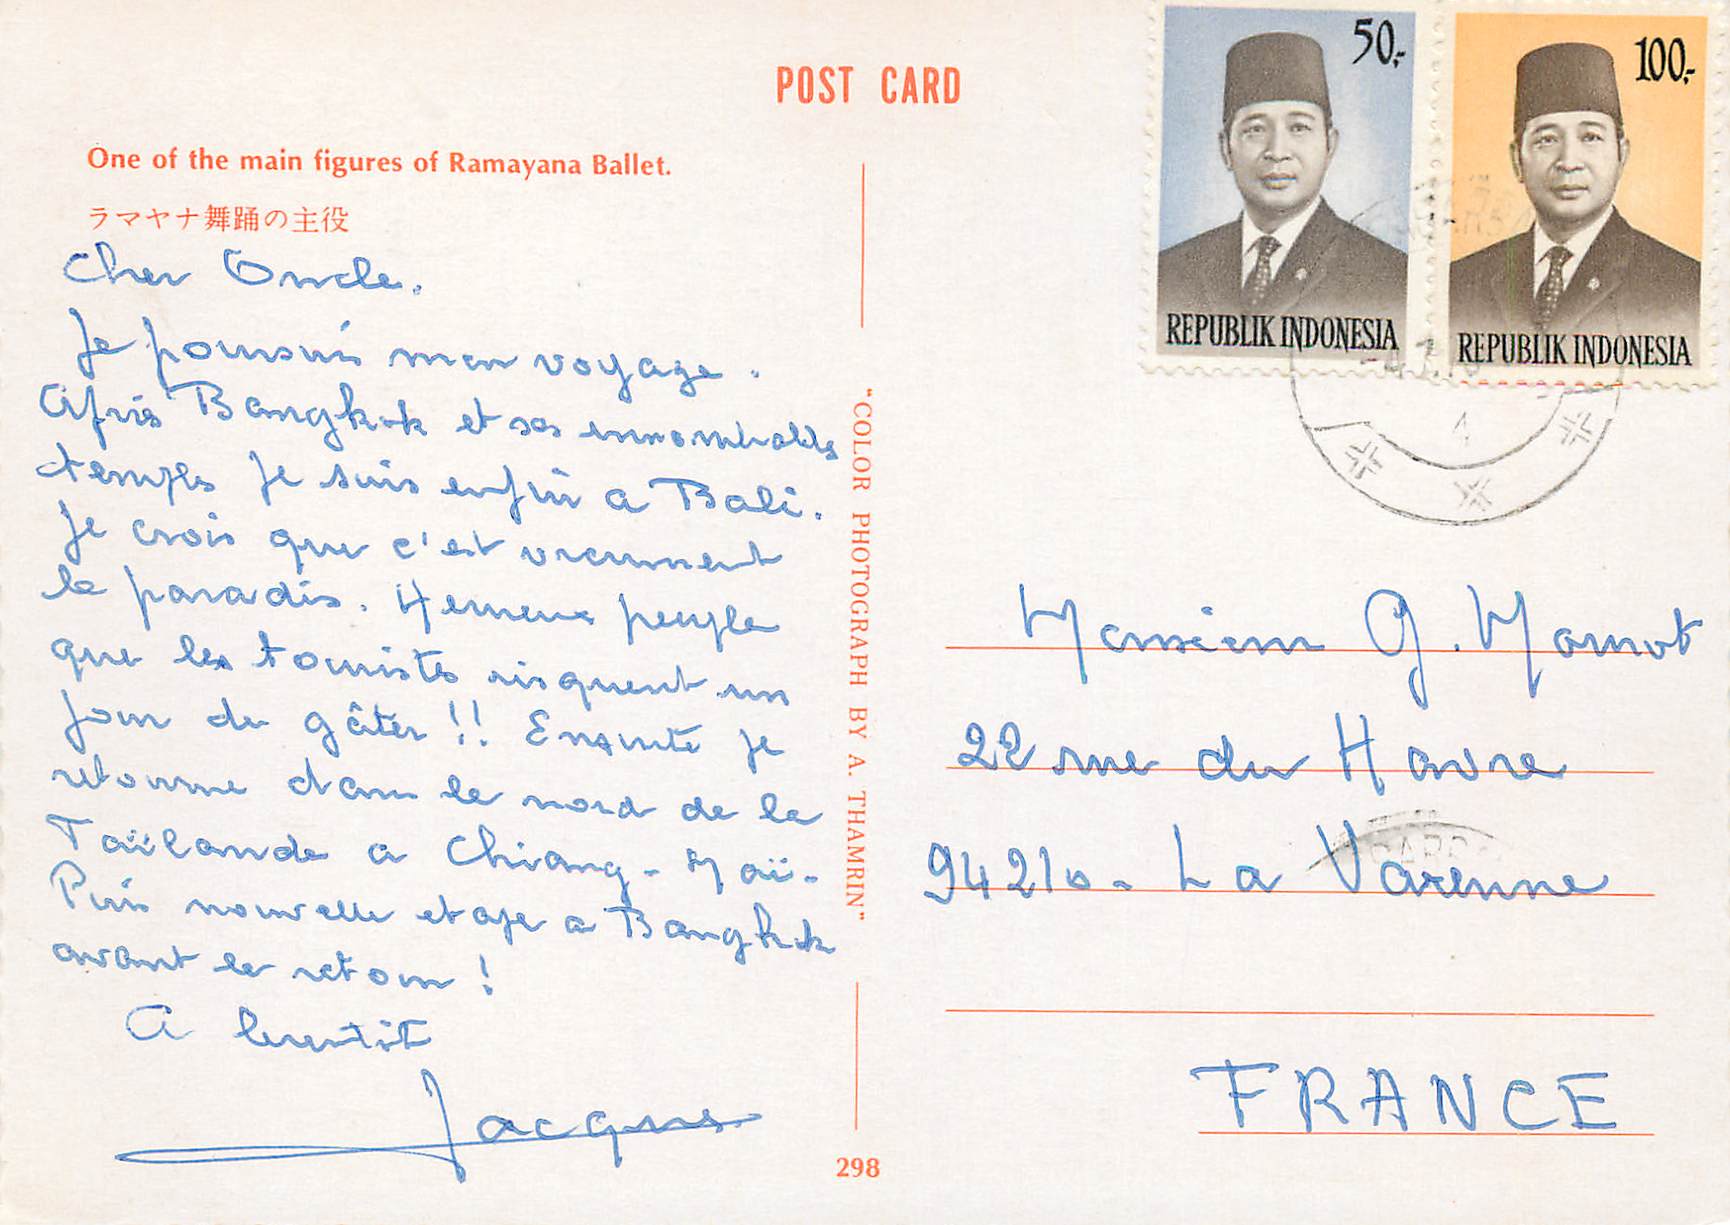 POST CARD
One of the main figures of Ramayana Ballet.
ラマヤナ舞踊の主役
Cher Oncle.
Je poursuis mon voyage.
Après Bangkok et ses innombrables
temples je suis enfin a Bali.
Je crois que c'est vraiment
le paradis. Heureux peuple
que les touristes risquent un
jour de gâter !! Ensuite je
retourne dans le nord de la
Taïlande a Chiang-Maï.
Puis nouvelle etape a Bangkok
avant le retour !
A bientôt
Jacques
"COLOR PHOTOGRAPH BY A. THAMRIN"
298
50,-
REPUBLIK INDONESIA
100,-
REPUBLIK INDONESIA
Monsieur G.
22 rue du Havre
94210 - La Varenne
FRANCE